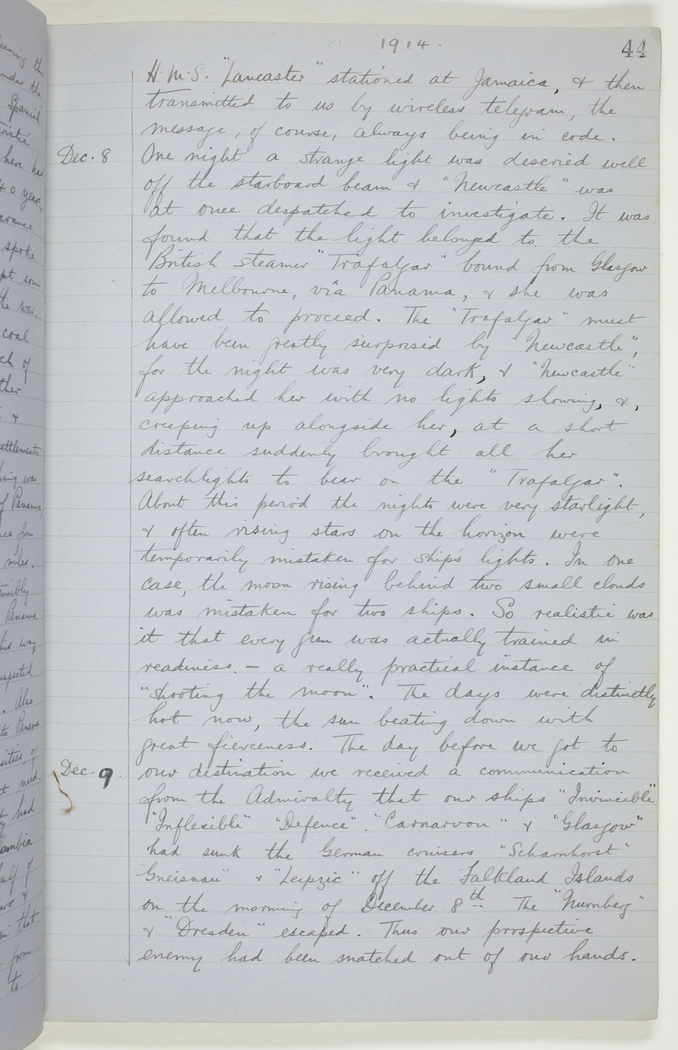 1914.
44
H.M.S. "Lancaster" stationed at Jamaica, & then
transmitted to us by wireless telegram, the
message, of course, always being in code.
Dec. 8 One night a strange light was descried well
off the starboard beam & "Newcastle" was
at once despatched to investigate. It was
found that the light belonged to the
British steamer "Trafalgar" bound from Glasgow
to Melbourne, viâ Panama, & she was
allowed to proceed. The "Trafalgar" must
have been greatly surprised by "Newcastle",
for the night was very dark, & "Newcastle"
approached her with no lights showing, &,
creeping up alongside her, at a short
distance suddenly brought all her
searchlights to bear on the "Trafalgar".
About this period the nights were very starlight,
& often rising stars on the horizon were
temporarily mistaken for ship's lights. In one
case, the moon rising behind two small clouds
was mistaken for two ships. So realistic was
it that every gun was actually trained in
readiness. — a really practical instance of
"shooting the moon". The days were distinctly
hot now, the sun beating down with
great fierceness. The day before we got to
Dec. 9 our destination we received a communication
from the Admiralty that our ships "Invincible"
"Inflexible" "Defence". "Carnarvon" & "Glasgow"
had sunk the German cruisers "Scharnhorst"
"Gneisnau" & "Leipzic" off the Falkland Islands
on the morning of December 8th. The "Nurnberg"
& "Dresden" escaped. Thus our prospective
enemy had been snatched out of our hands.